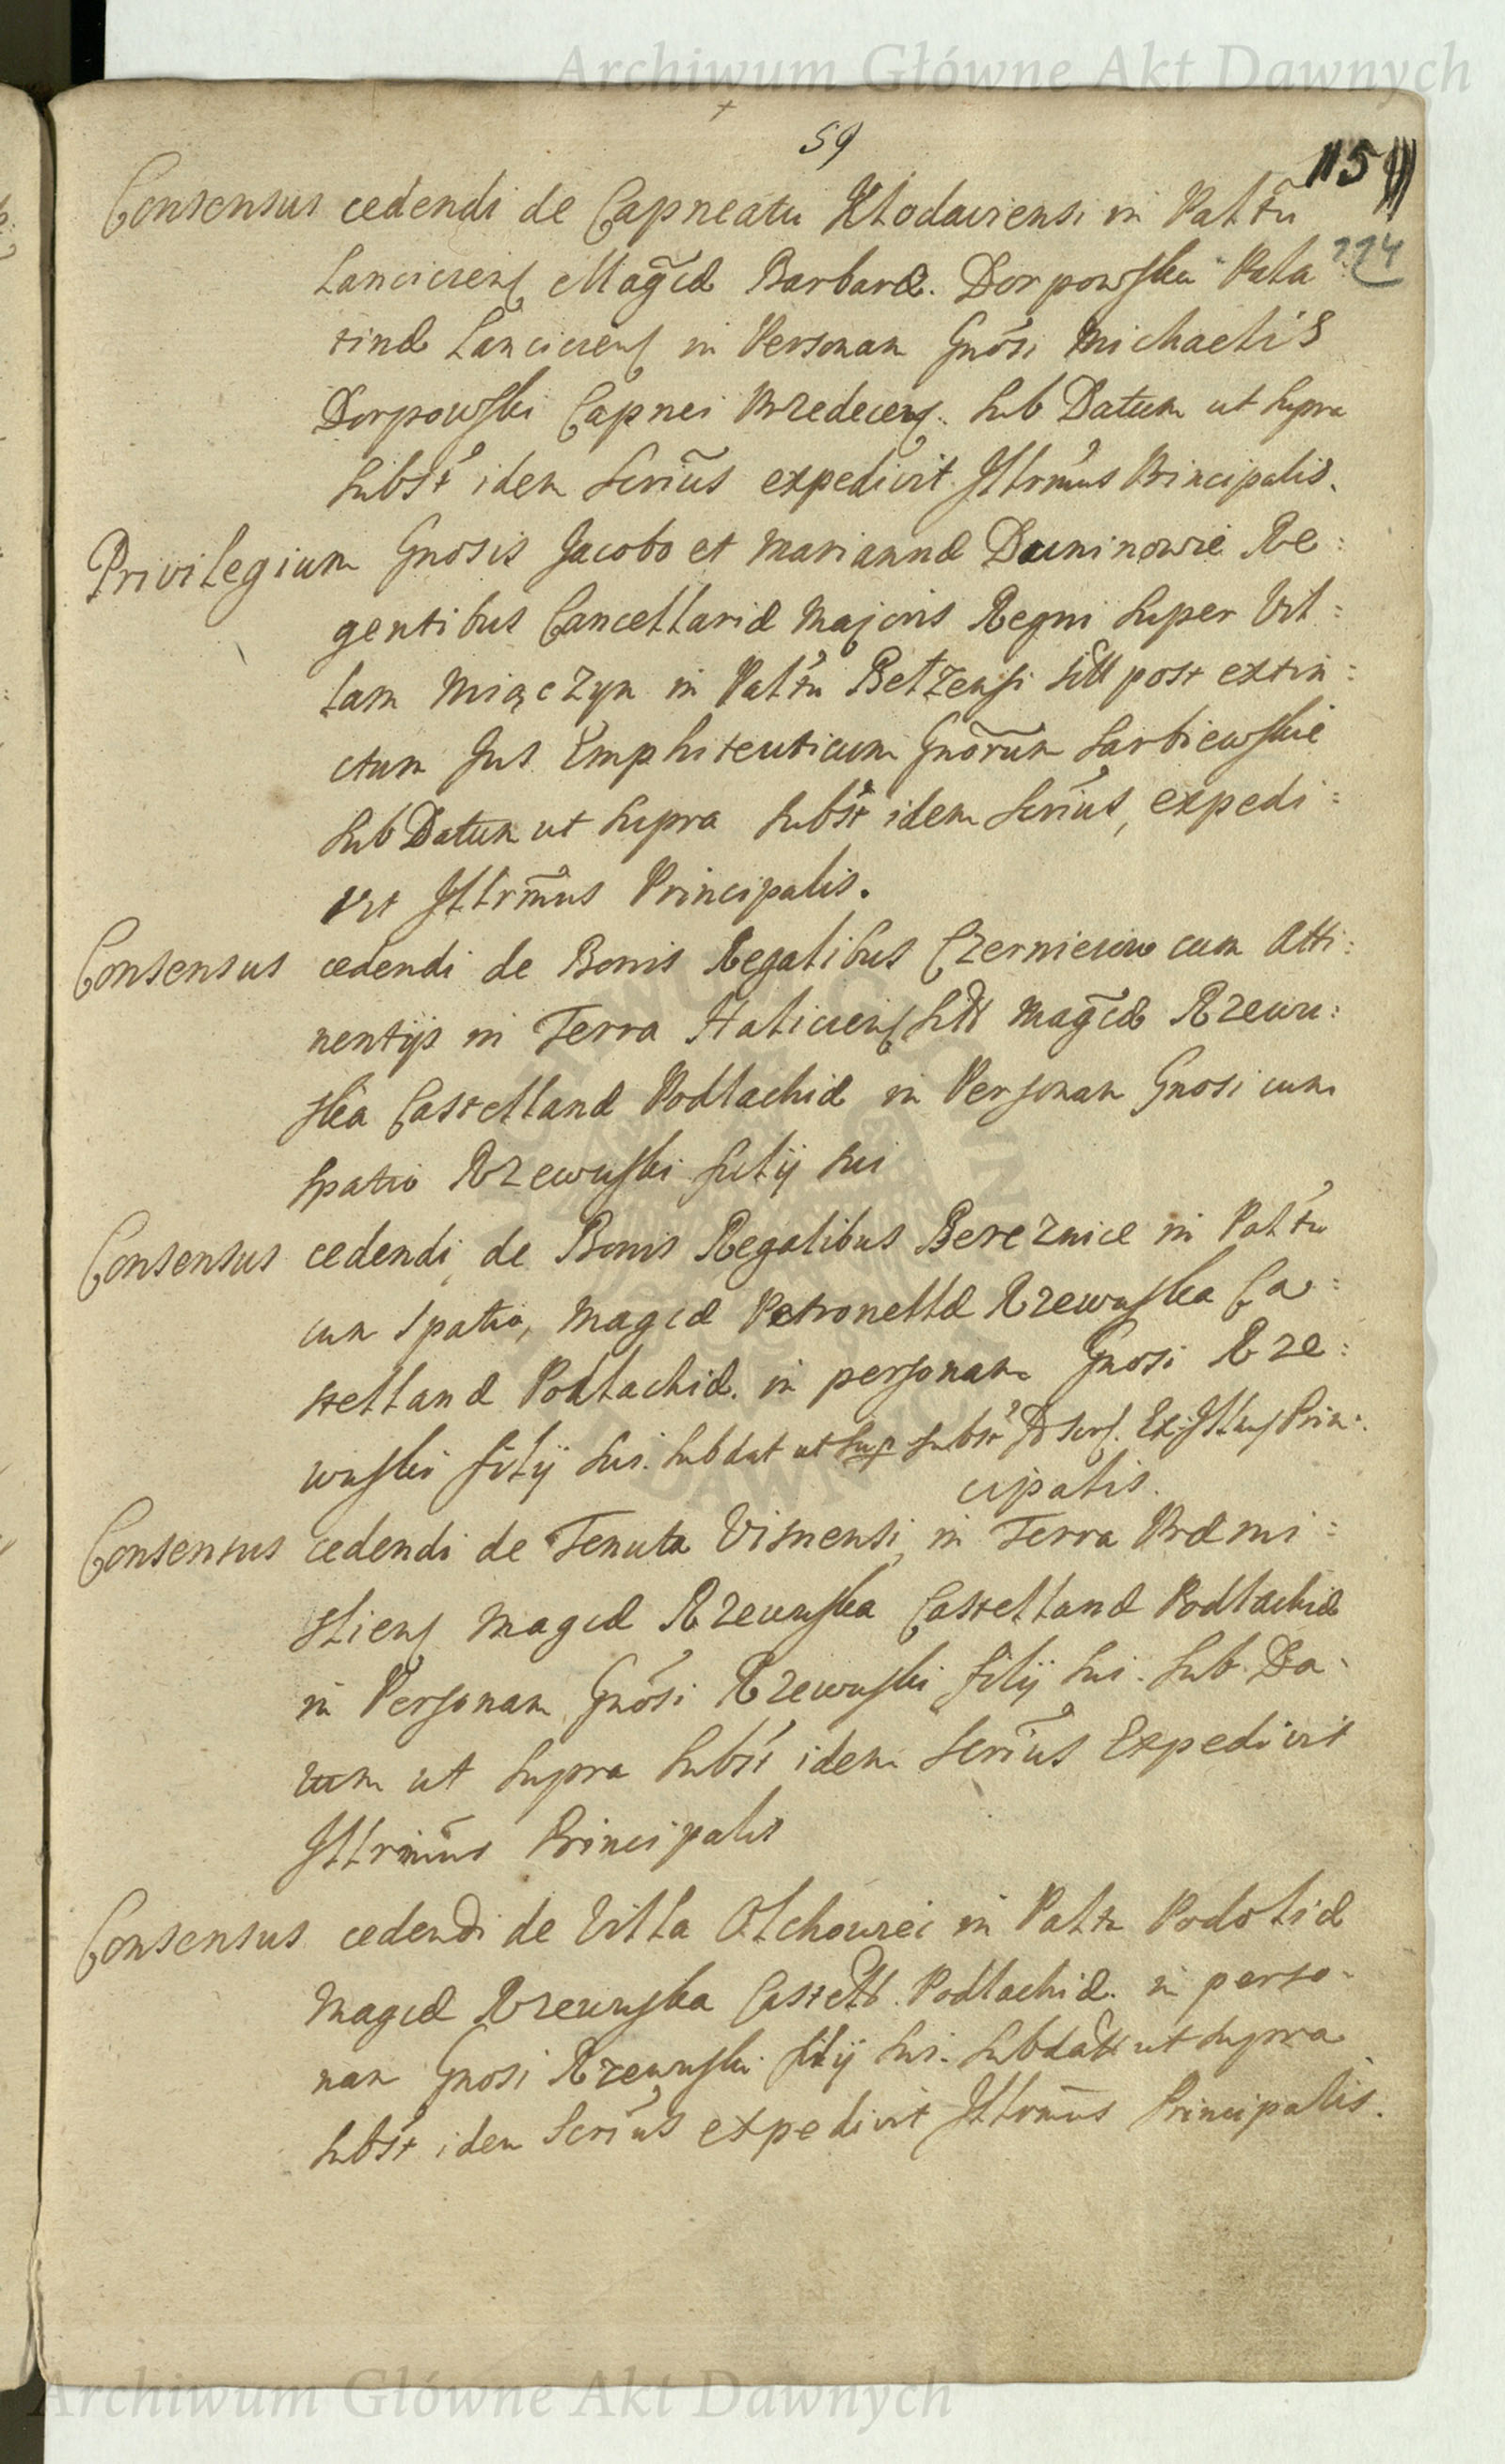 Archiwum Główne Akt Dawnych
59
115
114
Consensus cedendi de Capneatu Kłodaviensi in Pałtu
Lanciciens Magcæ Barbaræ Dorpowska Pala
tinæ Lanciciens in Personam Gnosi Michaelis
Dorpowski Capnei Przedecens. Sub Datum ut supra
subst idem Scrius expedivit Illrmus Principalis.
Privilegium Gnosis Jacobo et Mariannæ Duninowie Re:
gentibus Cancellariæ Majoris Regni super Vil:
lam Miączyn in Paltu Bełzensi sitt post extin:
ctum Jus Emphiteuticum Gnorum Sarbiewskie
Sub Datum ut supra subst idem Scrius, expedi:
vit Illrmus Principalis.
Consensus cedendi de Bonis Regalibus Czerniejow cum Atti:
nentijs in Terra Haliciens sitt Magcæ Rzewu:
ska Castellanæ Podlachiæ in Personam Gnosi cum
spatio Rzewuski filij sui
Consensus cedendi de Bonis Regalibus Bereznice in Paltu
cum spatio, Magcæ Petronellæ Rzewuska Ca:
stellanæ Podlachiæ. in personam Gnosi Rze:
wuski filij sui. Sub dat ut sup subst Id Scrs. Ex. Illus Prin:
cipalis.
Consensus cedendi de Tenuta Visnensi in Terra Præmi:
sliens Magcæ Rzewuska Castellanæ Podlachiæ
in Personam Gnosi Rzewuski filij sui. Sub Da
tum ut supra subst idem Scrius Expedivit
Illrmus Principalis
Consensus cedendi de Villa Olchowiei in Palt Podoliæ
Magcæ Rzewuska Castell. Podlachiæ. in perso-
nam Gnosi Rzewuski filij sui. Sub datt ut supra
subst idem Scrius expedivit Illrmus Principalis.
Archiwum Główne Akt Dawnych